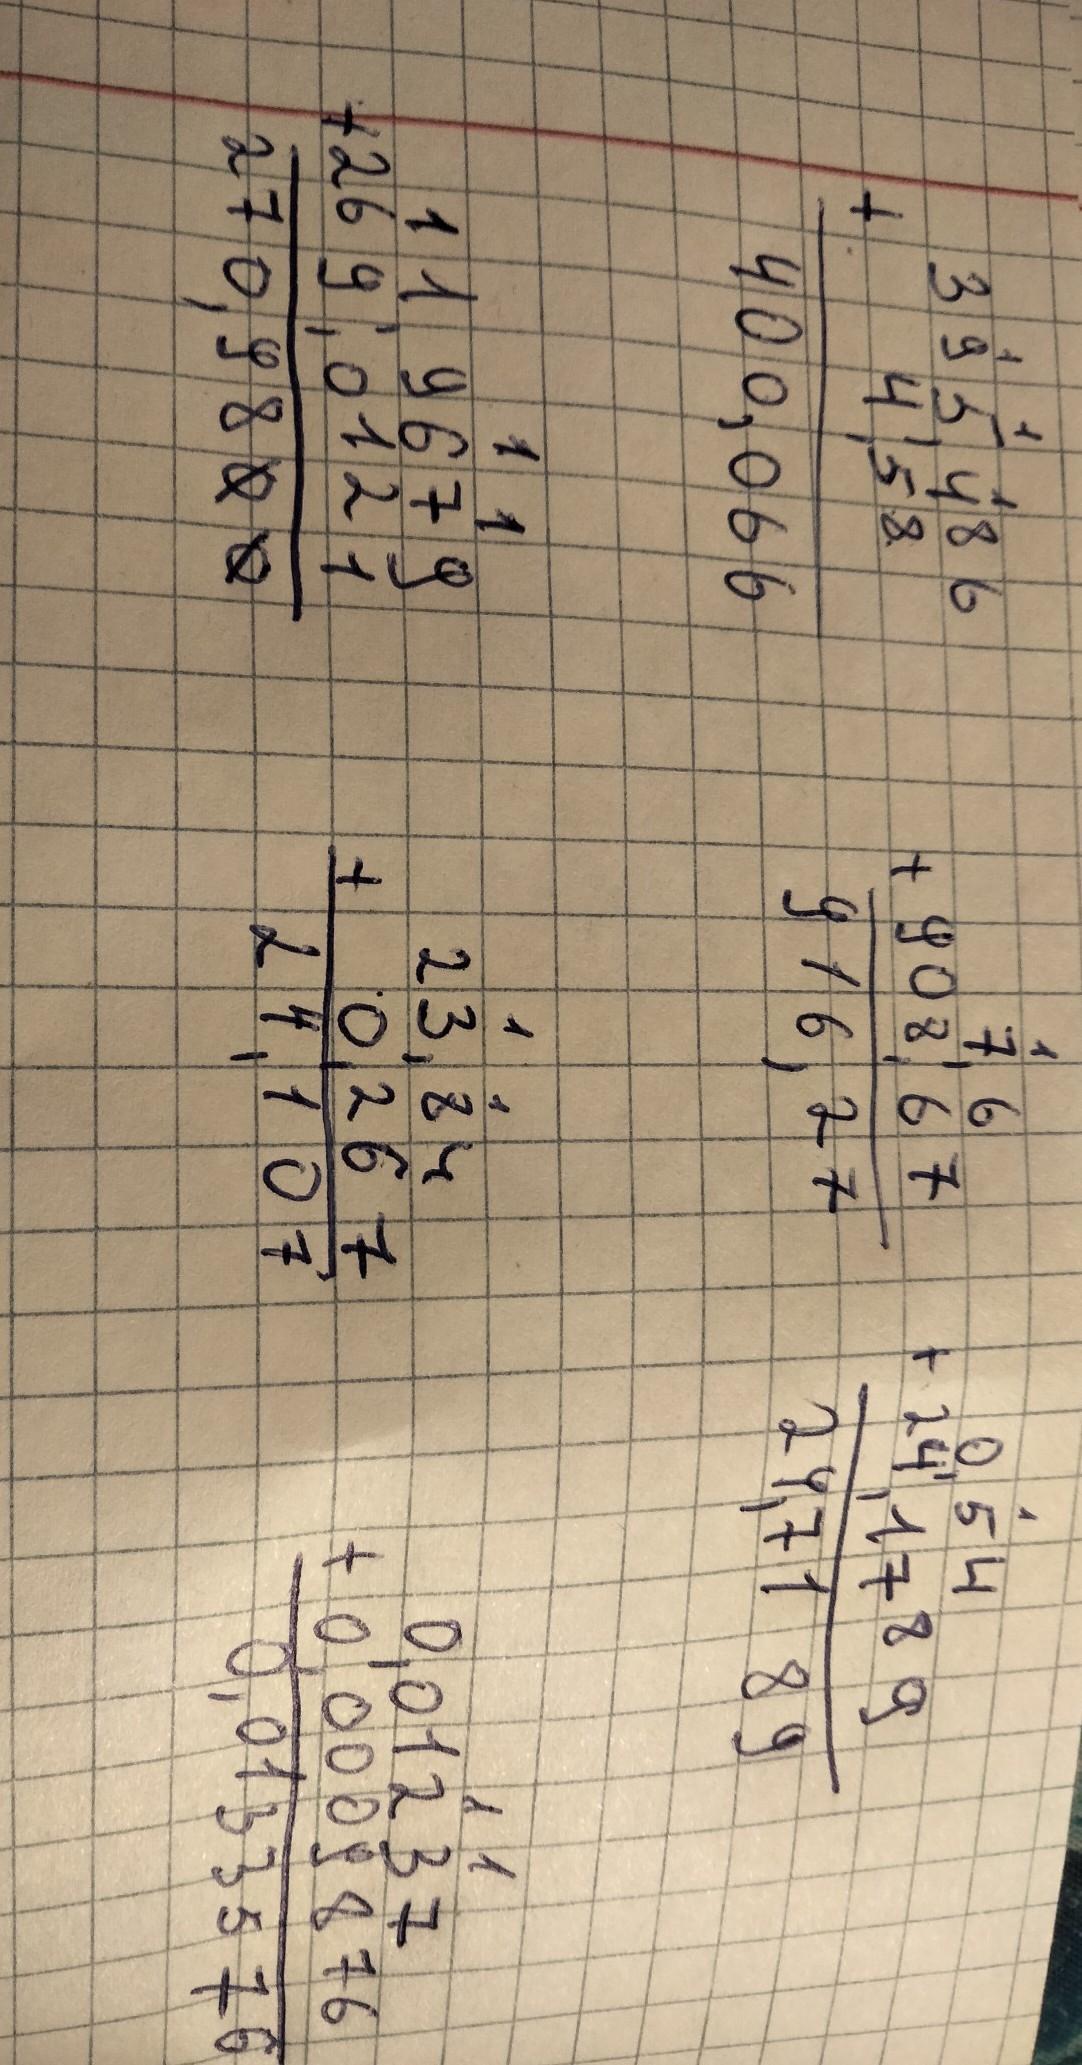 1 1 1
395,486
+ 4,58
400,066
1
7,6
+ 908,67
916,27
1
0,54
+ 24,1789
24,7189
1 1
1 1,9679
+ 269,0121
270,9800
1 1
23,84
+ 0,267
24,107
1 1
0,01237
+ 0,0009876
0,0133576